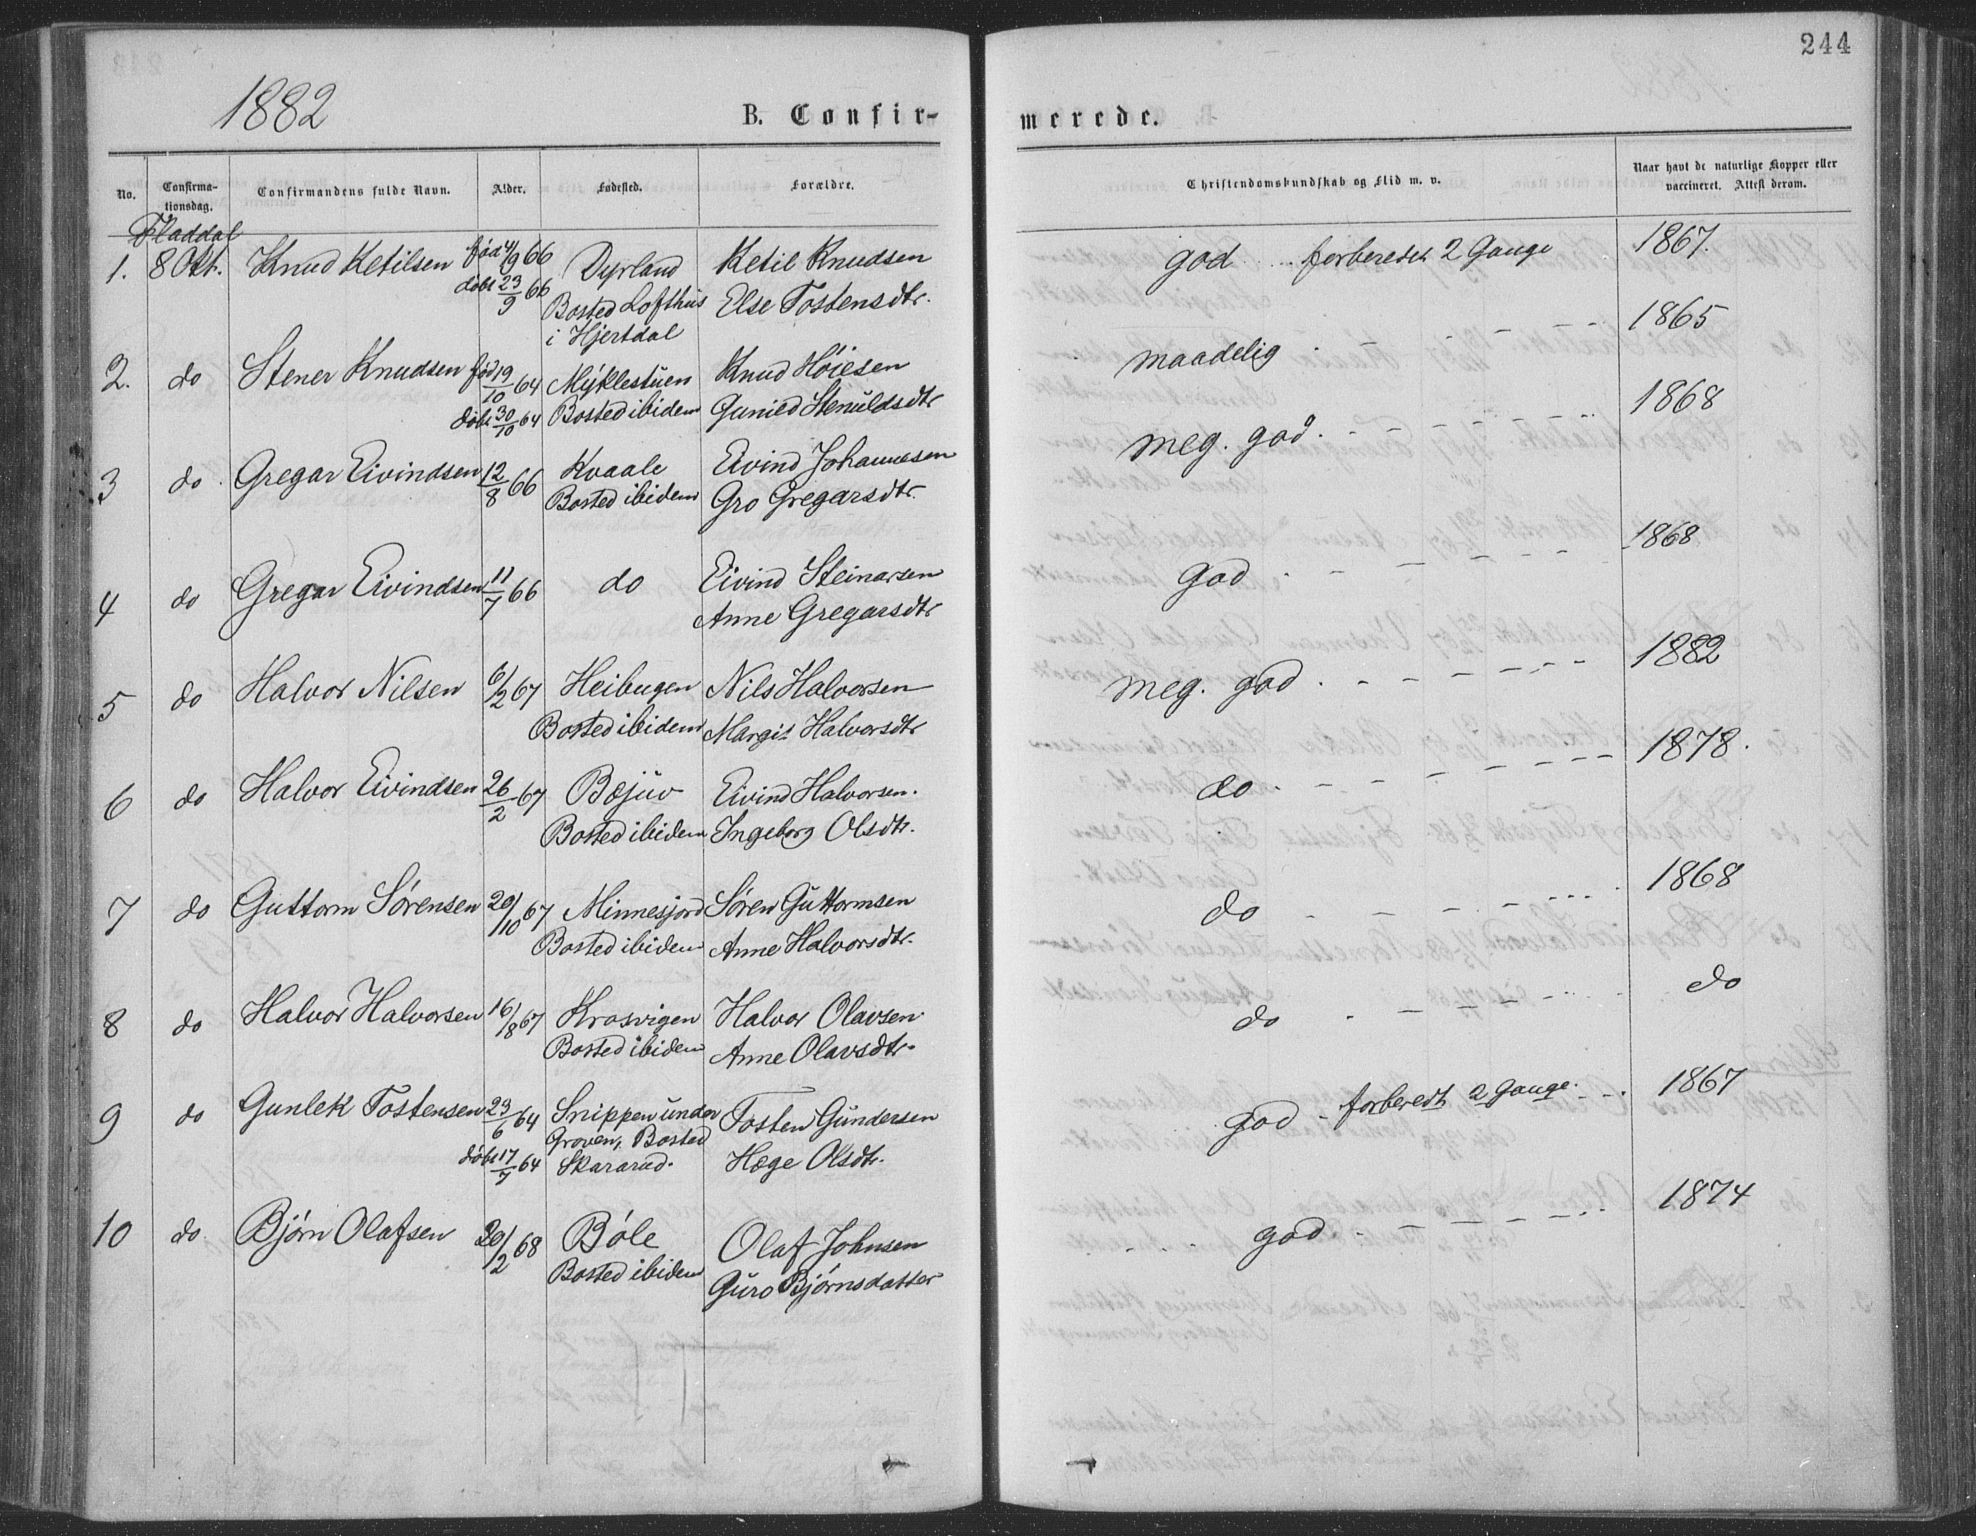 244
1882
B. Confir-
merede.
No.
Confirma-
tionsdag.
Confirmandens fulde Navn.
Alder.
Fødested.
Forældre.
Christendomskundskab og Flid m. v.
Naar havt de naturlige Kopper eller
vaccineret. Attest derom.
Fladdal
1. 8 Okt. Knud Ketilsen fød 4/9 66 Dyrland Ketil Knudsen god forberedt 2 Gange 1867.
døbt 23/9 66 Bosted Lofthus Else Tostensdtr.
i Hjertdal
2. do Stener Knudsen fød 19/10 64 Myklestuen Knud Høiesen maadelig 1865
døbt 30/10 64 Bosted ibidem Gunild Stenuldsdtr
3 do Gregar Eivindsen 12/8 66 Kvaale Eivind Johannesen meg. god. 1868
Bosted ibidem Gro Gregarsdtr.
4 do Gregar Eivindsen 11/7 66 do Eivind Steinarsen god 1868
Anne Gregarsdtr
5 do Halvor Nilsen 6/2 67 Heibugen Nils Halvorsen meg. god 1882
Bosted ibidem Margit Halvorsdtr
6 do Halvor Eivindsen 26/2 67 Bøjuv Eivind Halvorsen. do 1878.
Bosted ibidem Ingeborg Olsdtr.
7 do Guttorm Sørensen 20/10 67 Minnesjord Søren Guttormsen do 1868
Bosted ibidem Anne Halvorsdtr.
8 do Halvor Halvorsen 16/8 67 Krosvigen Halvor Olavsen do do
Bosted ibidem Anne Olavsdtr.
9 do Gunlek Tostensen 23/6 64 Snippen under Tosten Gundersen god - forberedt 2 Gange. 1867
Groven, Bosted
døbt 17/7 64 Skararud. Hæge Olsdtr.
10 do Bjørn Olafsen 20/2 68 Bøle Olaf Johnsen god. 1874
Bosted ibidem Guro Bjørnsdatter